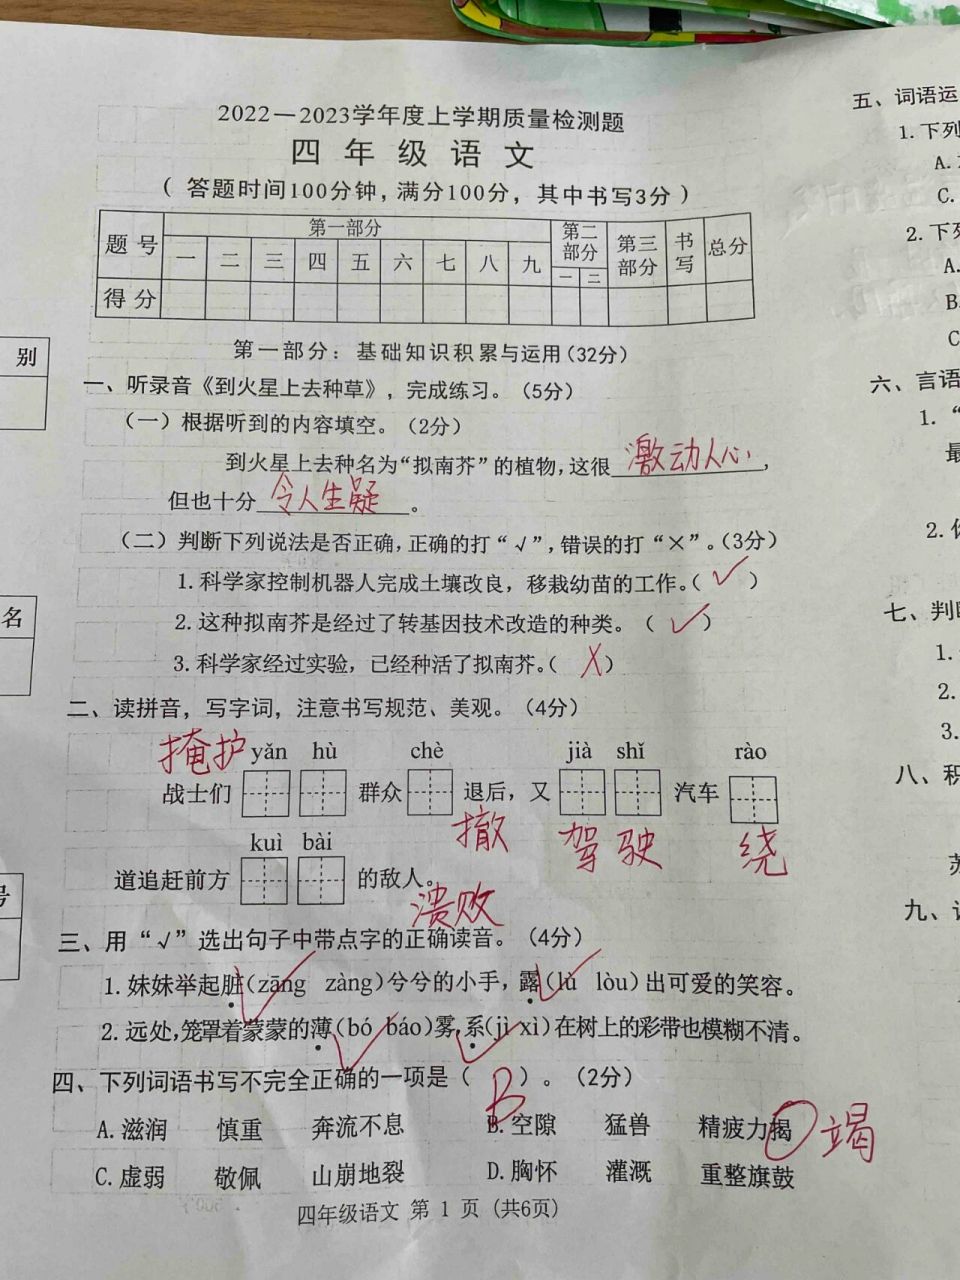 2022—2023学年度上学期质量检测题
四 年 级 语 文
（ 答题时间100分钟，满分100分，其中书写3分 ）
题 号 第一部分 第二部分 第三部分 书写 总分
一 二 三 四 五 六 七 八 九 一 二
得 分
第一部分：基础知识积累与运用（32分）
一、听录音《到火星上去种草》，完成练习。（5分）
（一）根据听到的内容填空。（2分）
到火星上去种名为“拟南芥”的植物，这很激动人心，
但也十分令人生疑。
（二）判断下列说法是否正确，正确的打“√”，错误的打“×”。（3分）
1. 科学家控制机器人完成土壤改良，移栽幼苗的工作。（ √ ）
2. 这种拟南芥是经过了转基因技术改造的种类。（ √ ）
3. 科学家经过实验，已经种活了拟南芥。（ X ）
二、读拼音，写字词，注意书写规范、美观。（4分）
掩护 yǎn hù chè jià shǐ rào
战士们 群众 退后，又 汽车
撤 驾 驶 绕
kuì bài
道追赶前方 的敌人。
溃败
三、用“√”选出句子中带点字的正确读音。（4分）
1. 妹妹举起脏（zāng zàng）兮兮的小手，露（lù lòu）出可爱的笑容。
2. 远处，笼罩着蒙蒙的薄（bó báo）雾，系（jì xì）在树上的彩带也模糊不清。
四、下列词语书写不完全正确的一项是（ B ）。（2分）
A. 滋润 慎重 奔流不息 B. 空隙 猛兽 精疲力揭 竭
C. 虚弱 敬佩 山崩地裂 D. 胸怀 灌溉 重整旗鼓
四年级语文 第 1 页 (共6页)
别
名
号
五、词语运
1. 下列
A.
C.
2. 下列
A.
B.
C
六、言语
1. “
最
2. 你
七、判断
1.
2.
3.
八、积
苏
九、